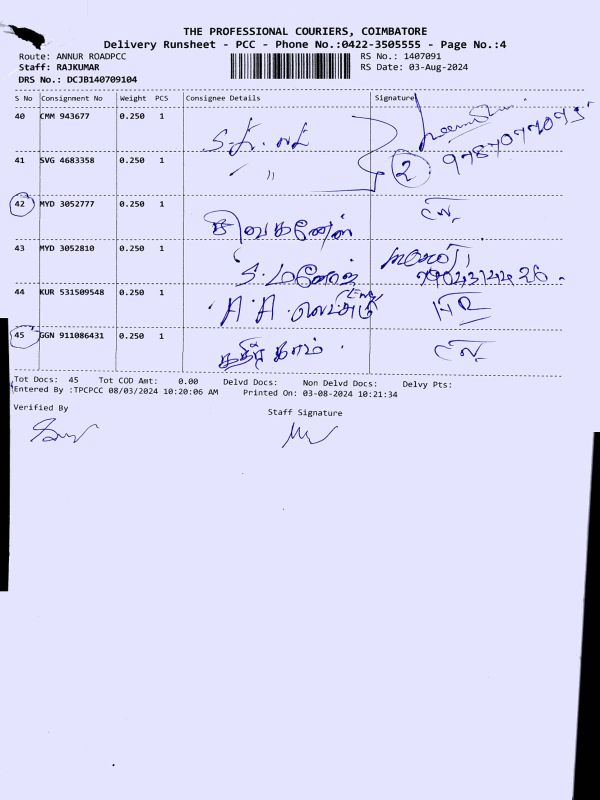 THE PROFESSIONAL COURIERS, COIMBATORE
Delivery Runsheet - PCC - Phone No.:0422-3505555 - Page No.:4
Route: ANNUR ROADPCC RS No.: 1407091
Staff: RAJKUMAR RS Date: 03-Aug-2024
DRS No.: DCJB140709104
S No Consignment No Weight PCS Consignee Details Signature
40 CMM 943677 0.250 1
41 SVG 4683358 0.250 1 〃 2
42 MYD 3052777 0.250 1
சிவகணேஷ்
43 MYD 3052810 0.250 1
S. மனோஜ்
44 KUR 531509548 0.250 1 A. A.
45 GGN 911086431 0.250 1
Tot Docs: 45 Tot COD Amt: 0.00 Delvd Docs: Non Delvd Docs: Delvy Pts:
Entered By :TPCPCC 08/03/2024 10:20:06 AM Printed On: 03-08-2024 10:21:34
Verified By Staff Signature